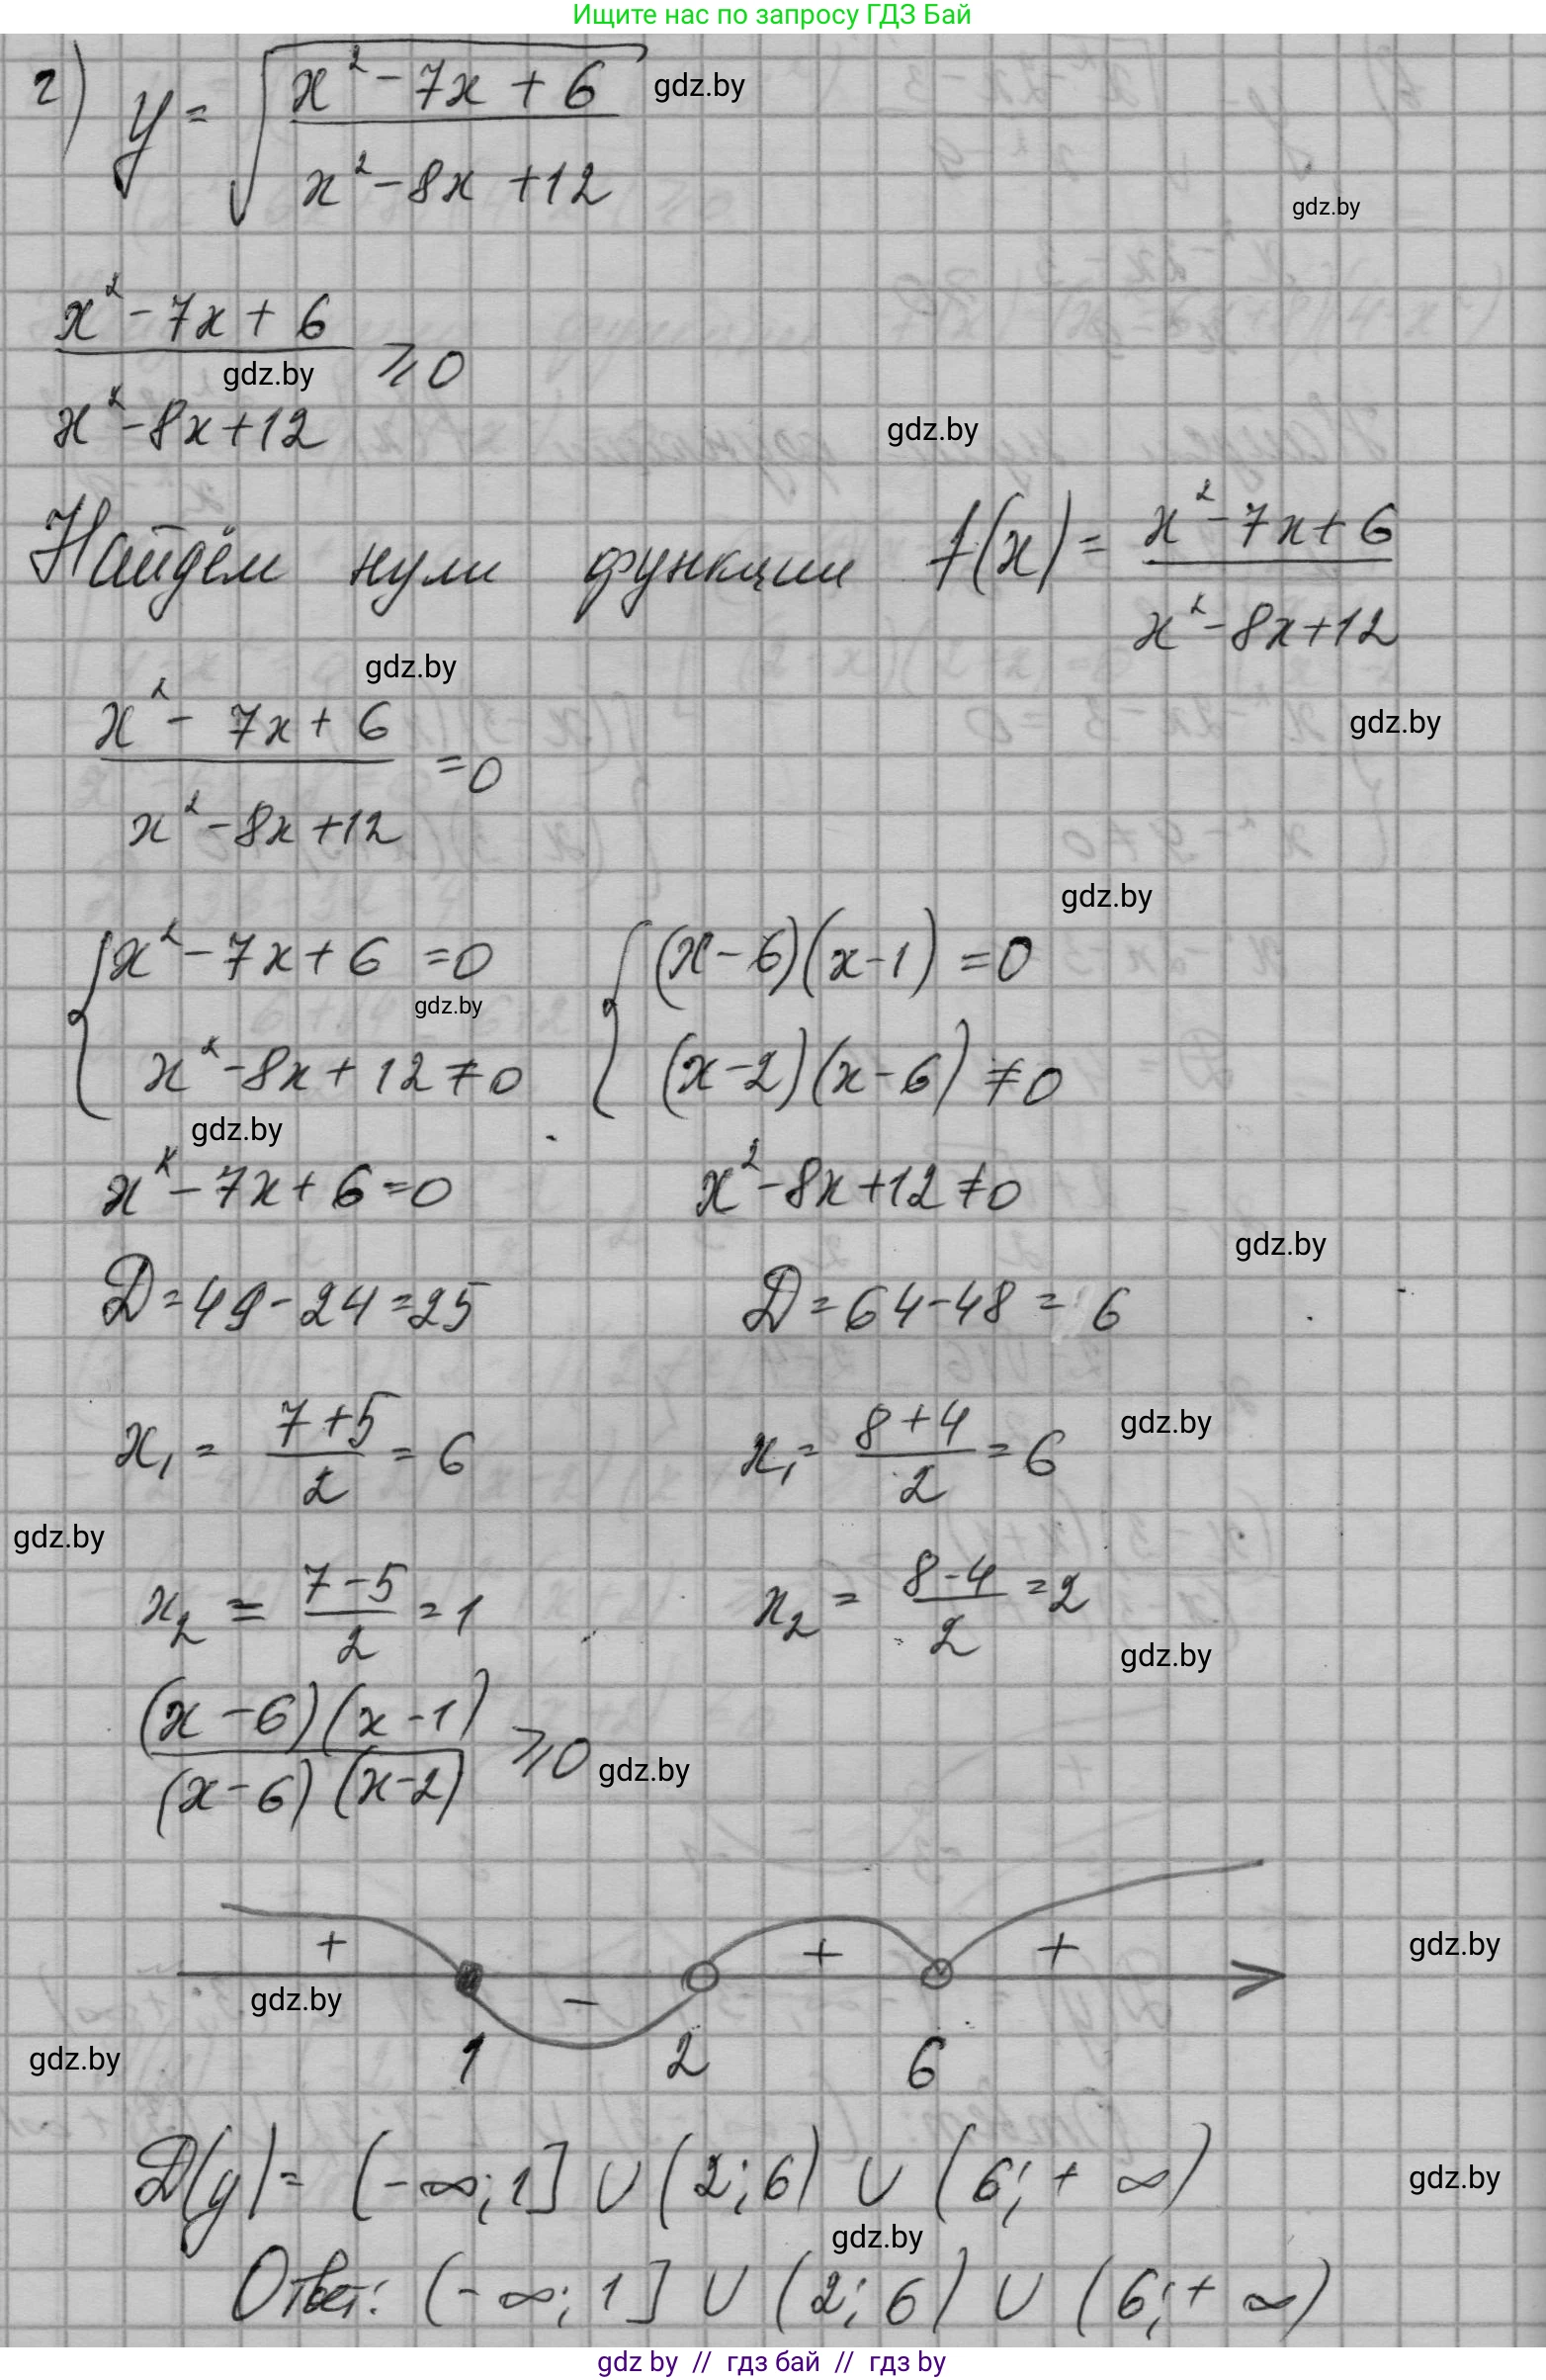 Ищите нас по запросу ГДЗ Бай
г) y = √((x² - 7x + 6)/(x² - 8x + 12)) gdz.by
gdz.by
(x² - 7x + 6)/(x² - 8x + 12) ⩾ 0
gdz.by
gdz.by
Найдём нули функции f(x) = (x² - 7x + 6)/(x² - 8x + 12)
gdz.by
gdz.by
(x² - 7x + 6)/(x² - 8x + 12) = 0
gdz.by
{ x² - 7x + 6 = 0 { (x - 6)(x - 1) = 0
gdz.by
x² - 8x + 12 ≠ 0 (x - 2)(x - 6) ≠ 0
gdz.by
x² - 7x + 6 = 0 x² - 8x + 12 ≠ 0
gdz.by
D = 49 - 24 = 25 D = 64 - 48 = 6
x₁ = (7 + 5)/2 = 6 x₁ = (8 + 4)/2 = 6 gdz.by
gdz.by
x₂ = (7 - 5)/2 = 1 x₂ = (8 - 4)/2 = 2
gdz.by
((x - 6)(x - 1))/((x - 6)(x - 2)) ⩾ 0 gdz.by
+ - + + gdz.by
gdz.by
1 2 6
gdz.by
D(y) = (-∞; 1] ∪ (2; 6) ∪ (6; + ∞) gdz.by
gdz.by
Ответ: (-∞; 1] ∪ (2; 6) ∪ (6; + ∞)
gdz by // гдз бай // gdz by